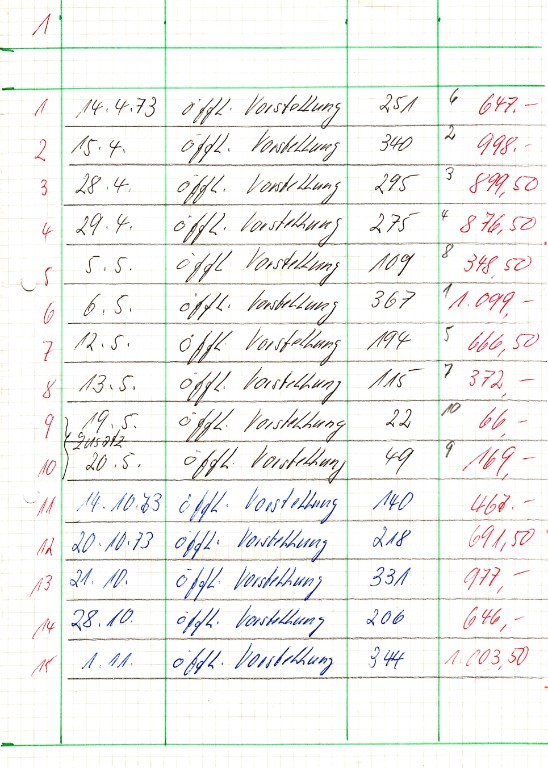 1
1 14.4.73 öffll. Vorstellung 251 6 647.-
2 15.4. öffll. Vorstellung 340 2 998.-
3 28.4. öffll. Vorstellung 295 3 899,50
4 29.4. öffll. Vorstellung 275 4 876,50
5 5.5. öffll. Vorstellung 109 8 348,50
6 6.5. öffll. Vorstellung 367 1 1.099,-
7 12.5. öffll. Vorstellung 194 5 666,50
8 13.5. öffll. Vorstellung 115 7 372,-
9 19.5. öffll. Vorstellung 22 10 66,-
Zusatz
10 20.5. öffll. Vorstellung 49 9 169,-
11 öffll. Vorstellung 140 467.-
12 20.10.73 öffll. Vorstellung 218 691,50
13 21.10. öffll. Vorstellung 331 977,-
14 28.10. öffll. Vorstellung 206 646,-
15 1.11. öffll. Vorstellung 344 1.003,50